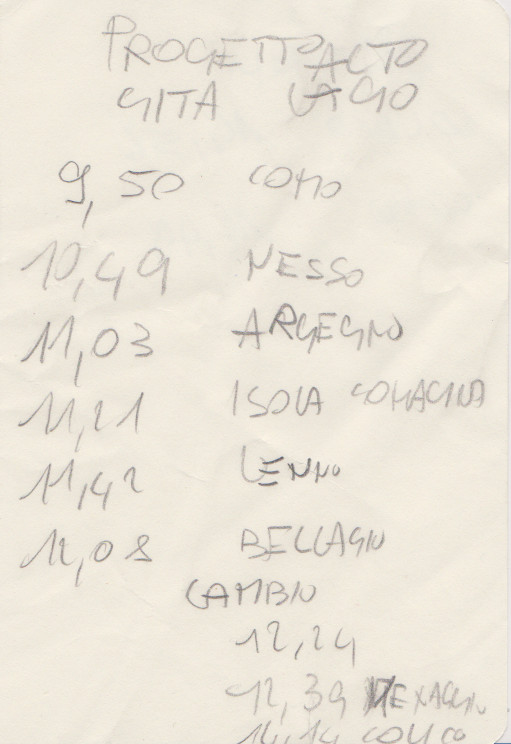 PROGETTO ALTO
GITA LAGO
9,50 COMO
10,49 NESSO
11,03 ARGEGNO
11,21 ISOLA COMACINA
11,42 LENNO
12,08 BELLAGIO
CAMBIO
12,24
12,39
14,14 COLICO